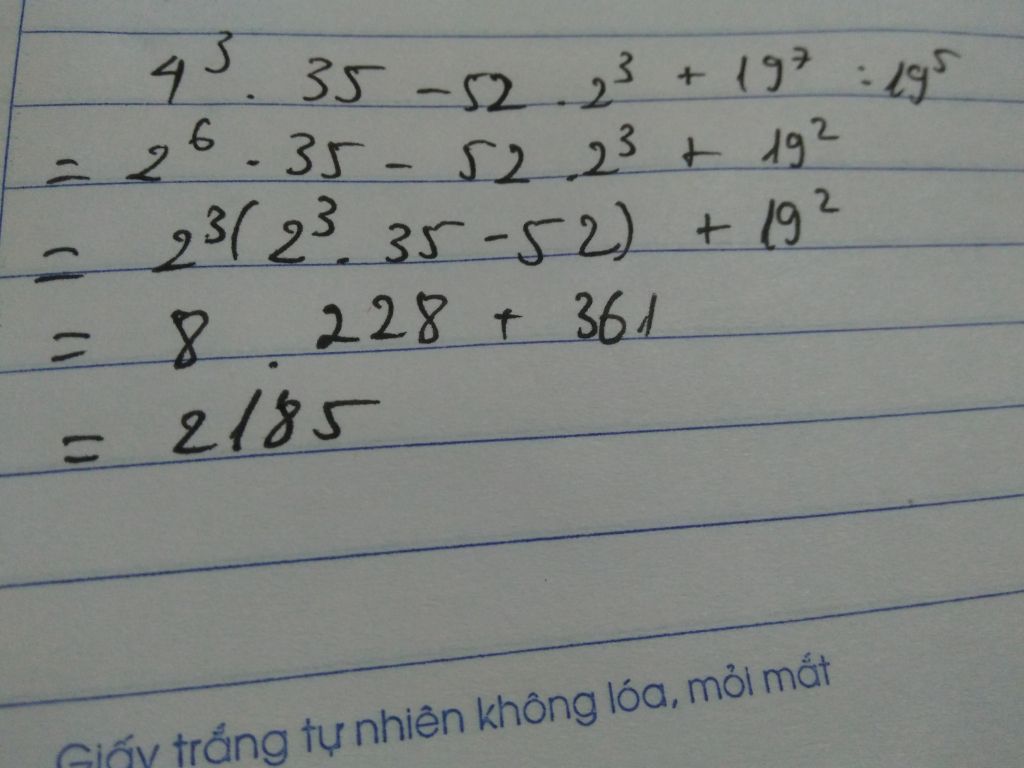 4³ . 35 - 52 . 2³ + 19⁷ : 19⁵
= 2⁶ . 35 - 52 . 2³ + 19²
= 2³(2³ . 35 - 52) + 19²
= 8 . 228 + 361
= 2185
Giấy trắng tự nhiên không lóa, mỏi mắt